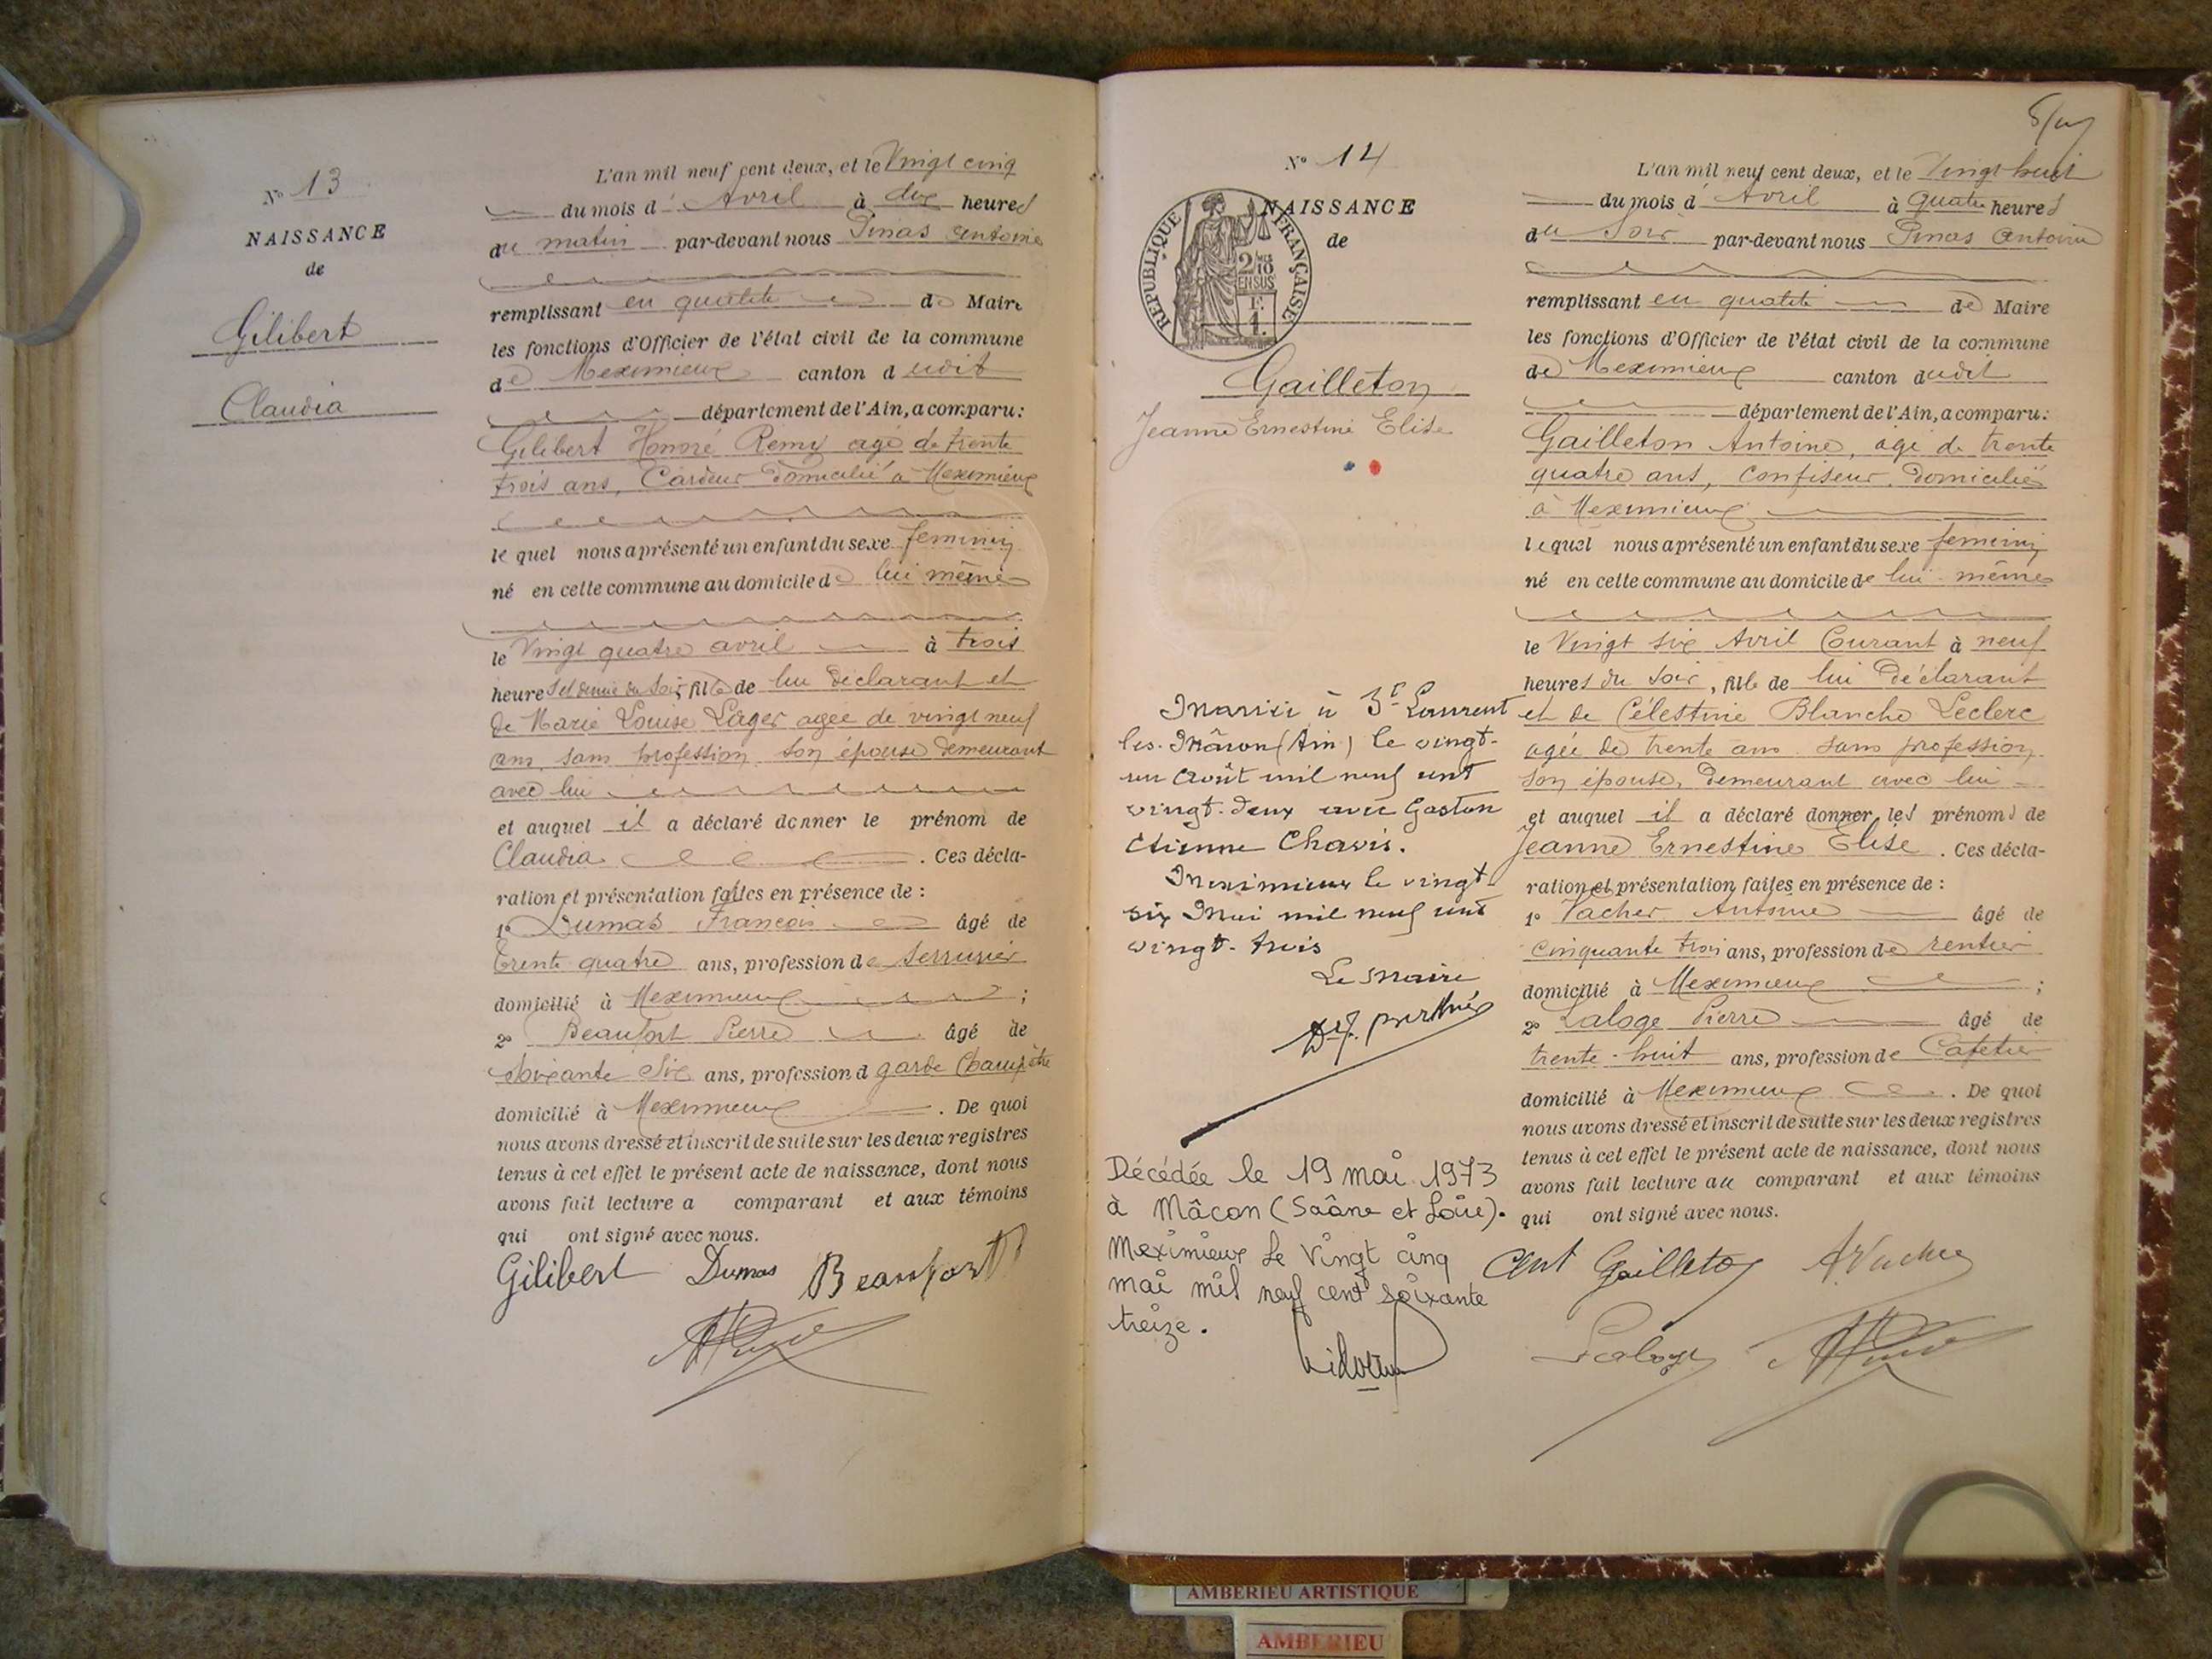 N° 13
NAISSANCE
de
Gilibert
Claudia
L'an mil neuf cent deux, et le Vingt cinq
du mois d'Avril à dix heures
du matin par-devant nous Pinas Antoine
remplissant en qualité de Maire
les fonctions d'Officier de l'état civil de la commune
de Meximieux canton dudit
département de l'Ain, a comparu:
Gilibert Honoré Remy agé de trente
trois ans, Cardeur domicilié à Meximieux
le quel nous a présenté un enfant du sexe feminin
né en cette commune au domicile de lui même
le Vingt quatre avril à trois
heures et demie du soir, fille de lui déclarant et
de Marie Louise Lager agée de vingt neuf
ans, sans profession son épouse demeurant
avec lui
et auquel il a déclaré donner le prénom de
Claudia. Ces décla-
ration et présentation faites en présence de :
1° Dumas François âgé de
trente quatre ans, profession de serrurier
domicilié à Meximieux ;
2° Beaufort Pierre âgé de
soixante six ans, profession d garde Champêtre
domicilié à Meximieux. De quoi
nous avons dressé et inscrit de suite sur les deux registres
tenus à cet effet le présent acte de naissance, dont nous
avons fait lecture a comparant et aux témoins
qui ont signé avec nous.
Gilibert Dumas Beaufort
N° 14
NAISSANCE
de
RÉPUBLIQUE FRANÇAISE
2/10
EN SUS
1 F.
Gailleton
Jeanne Ernestine Elise
Marié à St Laurent
les-Mâcon (Ain) le vingt-
un Août mil neuf cent
vingt-deux avec Gaston
Etienne Chavis.
Meximieux le vingt
six Mai mil neuf cent
vingt-trois
Le Maire
Décédée le 19 mai 1973
à Mâcon (Saône et Loire).
Meximieux le vingt cinq
mai mil neuf cent soixante
treize.
L'an mil neuf cent deux, et le Vingt huit
du mois d'Avril à quatre heures
du soir par-devant nous Pinas Antoine
remplissant en qualité de Maire
les fonctions d'Officier de l'état civil de la commune
de Meximieux canton dudit
département de l'Ain, a comparu:
Gailleton Antoine, agé de trente
quatre ans, confiseur domicilié
à Meximieux
lequel nous a présenté un enfant du sexe feminin
né en cette commune au domicile de lui-même
le Vingt six Avril Courant à neuf
heures du soir, fille de lui Déclarant
et de Célestine Blanche Leclerc
agée de trente ans sans profession
son épouse, demeurant avec lui
et auquel il a déclaré donner les prénoms de
Jeanne Ernestine Elise. Ces décla-
ration et présentation faites en présence de :
1° Vacher Antoine âgé de
cinquante trois ans, profession de rentier
domicilié à Meximieux ;
2° Laloge Pierre âgé de
trente-huit ans, profession de Cafetier
domicilié à Meximieux. De quoi
nous avons dressé et inscrit de suite sur les deux registres
tenus à cet effet le présent acte de naissance, dont nous
avons fait lecture au comparant et aux témoins
qui ont signé avec nous.
Ant Gailleton A. Vacher
Laloge
AMBERIEU ARTISTIQUE
AMBERIEU